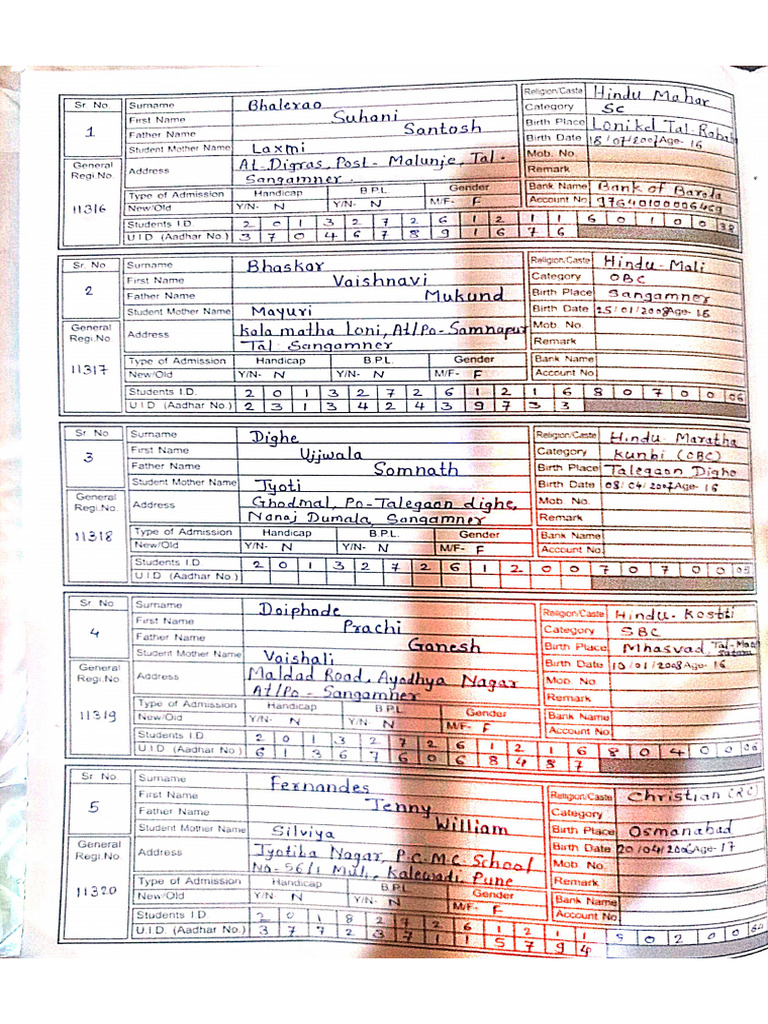 Sr. No. Surname Bhalerao Religion/Caste Hindu Mahar
1 First Name Suhani Category SC
Father Name Santosh Birth Place Lonikd Tal-
Student Mother Name Laxmi Birth Date 18/07/2007 Age- 16
General Regi.No. Address At-Digras, Post- Malunje, Tal- Mob. No.
Sangamner. Remark
11316 Type of Admission Handicap B.P.L. Gender Bank Name Bank of Baroda
New/Old Y/N- N Y/N- N M/F- F Account No.
Students I.D. 2 0 1 3 2 7 2 6 1 2 1 1 6 0 1 0 0 38
U.I.D. (Aadhar No.) 3 7 0 4 6 7 8 9 1 6 7 6
Sr. No. Surname Bhaskar Religion/Caste Hindu-Mali
2 First Name Vaishnavi Category OBC
Father Name Mukund Birth Place Sangamner
Student Mother Name Mayuri Birth Date 25/01/2008 Age- 16
General Regi.No. Address Kala matha Loni, At/Po-Samnapur Mob. No.
Tal Sangamner Remark
11317 Type of Admission Handicap B.P.L. Gender Bank Name
New/Old Y/N- N Y/N- N M/F- F Account No.
Students I.D. 2 0 1 3 2 7 2 6 1 2 1 6 8 0 7 0 0 06
U.I.D (Aadhar No.) 2 3 1 3 4 2 4 3 9 7 3 3
Sr. No Surname Dighe Religion/Caste Hindu-Maratha
3 First Name Ujjwala Category Kunbi (OBC)
Father Name Somnath Birth Place Talegaon Dighe
Student Mother Name Jyoti Birth Date 08/04/2007 Age- 16
General Regi.No. Address Ghodmal, Po-Talegaon dighe, Mob. No.
Nanaj Dumala, Sangamner Remark
11318 Type of Admission Handicap B.P.L. Gender Bank Name
New/Old Y/N- N Y/N- N M/F- F Account No.
Students I.D 2 0 1 3 2 7 2 6 1 2 0 0 7 0 7 0 0 05
U.I.D. (Aadhar No.)
Sr. No Surname Doiphode Religion/Caste Hindu-Koshti
4 First Name Prachi Category SBC
Father Name Ganesh Birth Place Mhasvad
Student Mother Name Vaishali Birth Date 10/01/2008 Age- 16
General Regi.No. Address Maldad Road, Ayodhya Nagar Mob. No.
At/Po - Sangamner Remark
11319 Type of Admission Handicap B.P.L Gender Bank Name
New/Old Y/N- N Y/N- N M/F- F Account No.
Students I.D 2 0 1 3 2 7 2 6 1 2 1 6 8 0 4 0 0 06
U.I.D. (Aadhar No.) 6 1 3 6 7 6 0 6 8 4 8 7
Sr. No Surname Fernandes Religion/Caste Christian (RC)
5 First Name Jenny Category
Father Name William Birth Place Osmanabad
Student Mother Name Silviya Birth Date 20/04/2006 Age- 17
General Regi.No. Address Jyotiba Nagar, P.C.M.C. School Mob. No.
No-56/1 Kalewadi Pune Remark
11320 Type of Admission Handicap B.P.L. Gender Bank Name
New/Old Y/N- N Y/N- N M/F- F Account No.
Students I.D 2 0 1 8 2 7 2 6 1 2 1 1 5 0 2 0 0
U.I.D. (Aadhar No.) 3 7 7 2 3 7 1 1 5 7 9 4